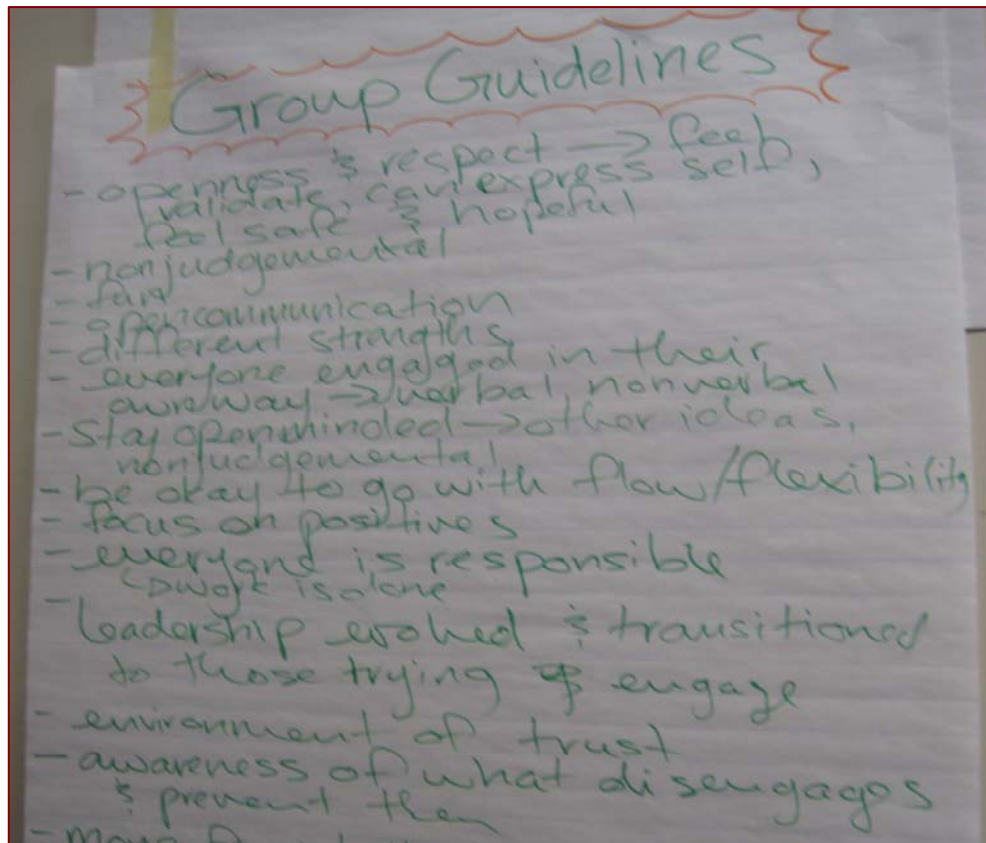 Group Guidelines
- openness & respect → feel
validate, can express self,
feel safe & hopeful
- nonjudgemental
- fun
- open communication
- different strengths
- everyone engaged in their
own way → verbal, nonverbal
- stay openminded → other ideas,
nonjudgemental
- be okay to go with flow/flexibility
- focus on positives
- everyone is responsible
↳ work is done
- leadership evolved & transitioned
to those trying engage
- environment of trust
- awareness of what disengages
& prevent them